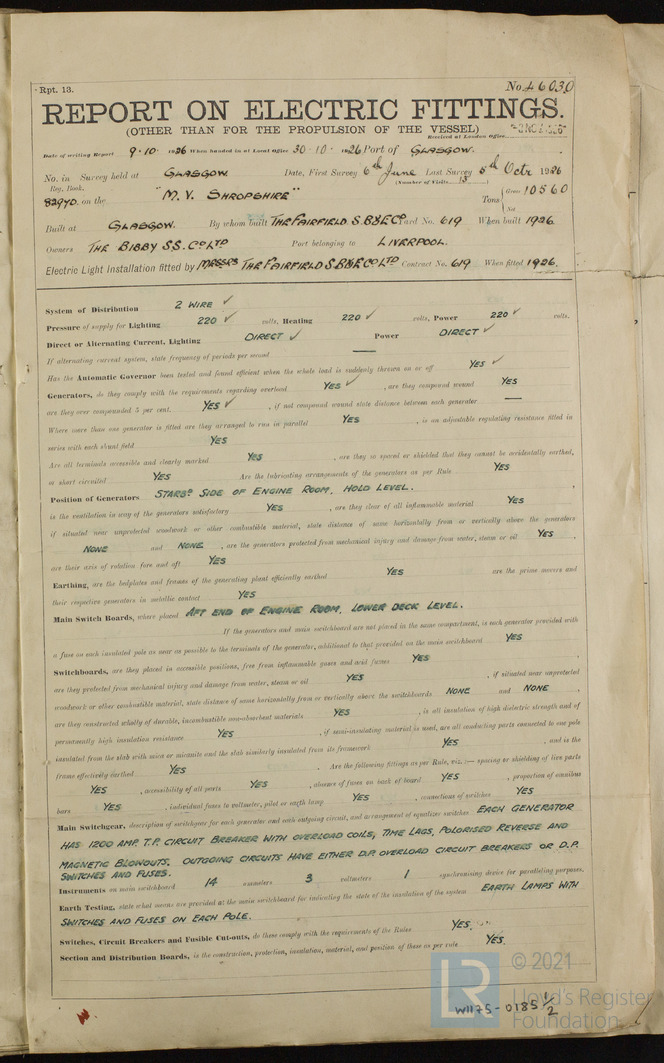 Rpt. 13. No. 46030
REPORT ON ELECTRIC FITTINGS.
(OTHER THAN FOR THE PROPULSION OF THE VESSEL)
Received at London Office
Date of writing Report 9.10. 1926 When handed in at Local Office 30.10. 1926 Port of GLASGOW.
No. in Survey held at GLASGOW. Date, First Survey 6th June Last Survey 5th Octr 1926
Reg. Book. (Number of Visits 13 )
82970. on the "M.V. SHROPSHIRE" Tons { Gross 10560
Net
Built at GLASGOW. By whom built THE FAIRFIELD S.B&E Co Yard No. 619 When built 1926.
Owners THE BIBBY S.S. Co LTD Port belonging to LIVERPOOL.
Electric Light Installation fitted by MESSRS THE FAIRFIELD S.B&E Co LTD Contract No. 619 When fitted 1926.
System of Distribution 2 WIRE ✓
Pressure of supply for Lighting 220 ✓ volts, Heating 220 ✓ volts, Power 220 ✓ volts.
Direct or Alternating Current, Lighting DIRECT ✓ Power DIRECT ✓
If alternating current system, state frequency of periods per second —
Has the Automatic Governor been tested and found efficient when the whole load is suddenly thrown on or off YES ✓
Generators, do they comply with the requirements regarding overload YES ✓, are they compound wound YES
are they over compounded 5 per cent. YES ✓, if not compound wound state distance between each generator —
Where more than one generator is fitted are they arranged to run in parallel YES, is an adjustable regulating resistance fitted in
series with each shunt field YES
Are all terminals accessible and clearly marked YES, are they so spaced or shielded that they cannot be accidentally earthed,
or short circuited YES Are the lubricating arrangements of the generators as per Rule YES
Position of Generators STARBD SIDE OF ENGINE ROOM, HOLD LEVEL.
is the ventilation in way of the generators satisfactory YES, are they clear of all inflammable material YES
if situated near unprotected woodwork or other combustible material, state distance of same horizontally from or vertically above the generators
NONE and NONE, are the generators protected from mechanical injury and damage from water, steam or oil YES,
are their axis of rotation fore and aft YES
Earthing, are the bedplates and frames of the generating plant efficiently earthed YES are the prime movers and
their respective generators in metallic contact YES
Main Switch Boards, where placed AFT END OF ENGINE ROOM, LOWER DECK LEVEL.
If the generators and main switchboard are not placed in the same compartment, is each generator provided with
a fuse on each insulated pole as near as possible to the terminals of the generator, additional to that provided on the main switchboard YES
Switchboards, are they placed in accessible positions, free from inflammable gases and acid fumes YES,
are they protected from mechanical injury and damage from water, steam or oil YES, if situated near unprotected
woodwork or other combustible material, state distance of same horizontally from or vertically above the switchboards NONE and NONE,
are they constructed wholly of durable, incombustible non-absorbent materials YES, is all insulation of high dielectric strength and of
permanently high insulation resistance YES, if semi-insulating material is used, are all conducting parts connected to one pole
insulated from the slab with mica or micanite and the slab similarly insulated from its framework YES, and is the
frame effectively earthed YES. Are the following fittings as per Rule, viz.:— spacing or shielding of live parts
YES, accessibility of all parts YES, absence of fuses on back of board YES, proportion of omnibus
bars YES, individual fuses to voltmeter, pilot or earth lamp YES, connections of switches YES
Main Switchgear, description of switchgear for each generator and each outgoing circuit, and arrangement of equalizer switches EACH GENERATOR
HAS 1200 AMP. T.P. CIRCUIT BREAKER WITH OVERLOAD COILS, TIME LAGS, POLARISED REVERSE AND
MAGNETIC BLOWOUTS. OUTGOING CIRCUITS HAVE EITHER D.P. OVERLOAD CIRCUIT BREAKERS OR D.P.
SWITCHES AND FUSES.
Instruments on main switchboard 14 ammeters 3 voltmeters 1 synchronising device for paralleling purposes.
Earth Testing, state what means are provided at the main switchboard for indicating the state of the insulation of the system EARTH LAMPS WITH
SWITCHES AND FUSES ON EACH POLE.
Switches, Circuit Breakers and Fusible Cut-outs, do these comply with the requirements of the Rules YES.
Section and Distribution Boards, is the construction, protection, insulation, material, and position of these as per rule YES.
LR
© 2021
Lloyd's Register
Foundation
W1175-0185 1/2